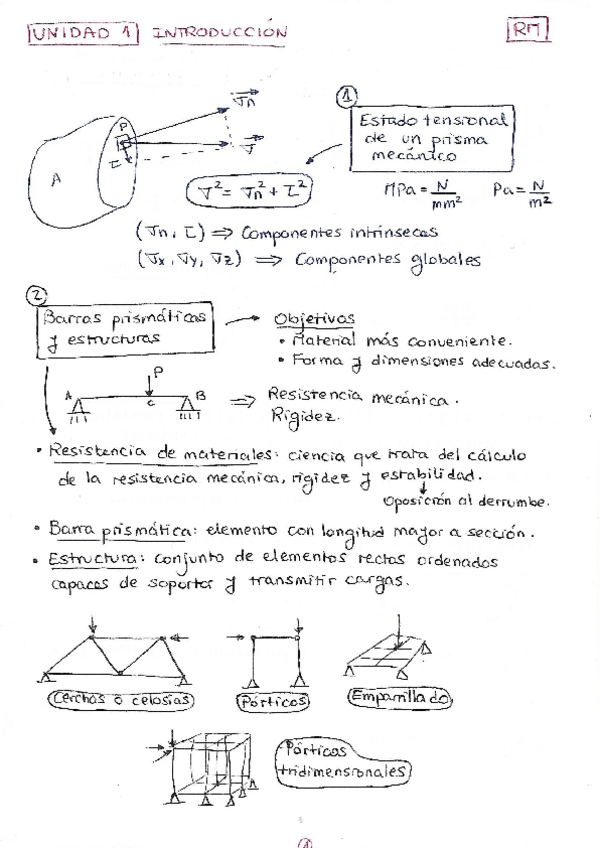 UNIDAD 1 INTRODUCCIÓN
RM
1
Estado tensional
de un prisma
mecánico
P
σn
σ
τ
A
σ² = σn² + τ²
MPa = N/mm² Pa = N/m²
(σn, τ) ⇒ Componentes intrínsecas
(σx, σy, σz) ⇒ Componentes globales
2
Barras prismáticas
y estructuras
Objetivos
• Material más conveniente.
• Forma y dimensiones adecuadas.
P
A
C
B
⇒ Resistencia mecánica.
Rigidez.
• Resistencia de materiales: ciencia que trata del cálculo
de la resistencia mecánica, rigidez y estabilidad.
Oposición al derrumbe.
• Barra prismática: elemento con longitud mayor a sección.
• Estructura: conjunto de elementos rectos ordenados
capaces de soportar y transmitir cargas.
Cerchas o celosías
Pórticos
Emparrillado
Pórticos
tridimensionales
1